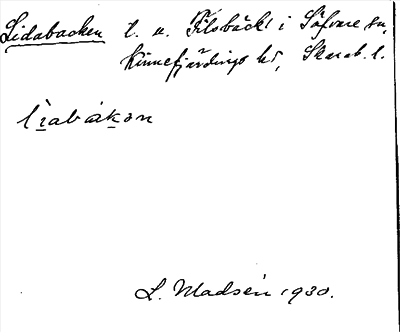 Lidabacken t. u. Filsbäck i Säfvare sn,
Kinnefjärdings hd, Skarab. l.
lıabakən
L. Madsén 1930.